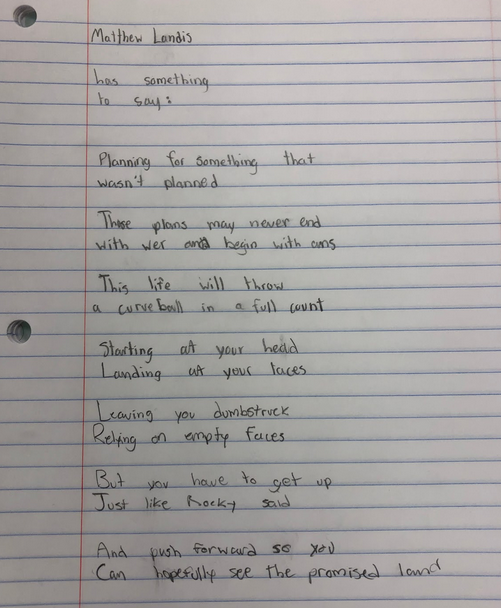 Matthew Landis
has something
to say:
Planning for something that
wasn't planned
These plans may never end
with wer and begin with ams
This life will throw
a curveball in a full count
Starting at your head
Landing at your laces
Leaving you dumbstruck
Relying on empty faces
But you have to get up
Just like Rocky said
And push forward so you
Can hopefully see the promised land